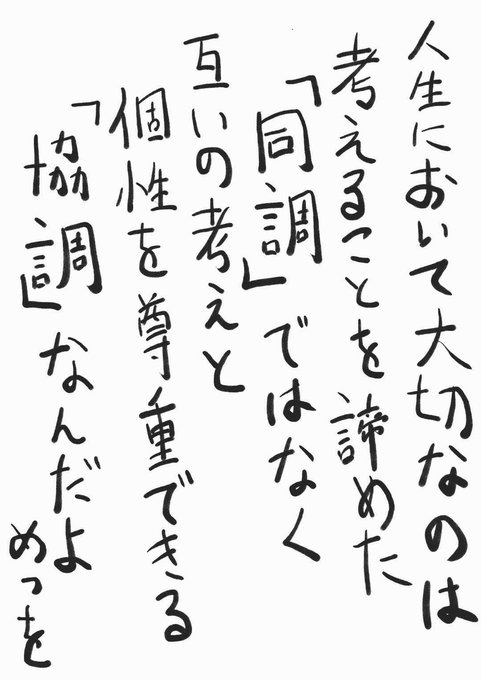 人生において大切なのは
考えることを諦めた
「同調」ではなく
互いの考えと
個性を尊重できる
「協調」なんだよ
めっを